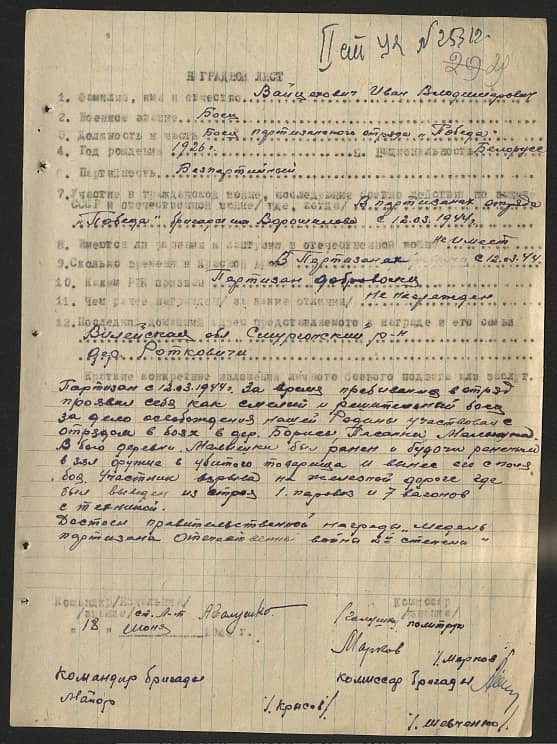 II эт УК № 25312
29
НАГРАДНОЙ ЛИСТ
1. Фамилия, имя и отчество Вайцехович Иван Владимирович
2. Военное звание Боец
3. Должность и часть Боец партизанского отряда "Победа"
4. Год рождения 1926г. 5. Национальность Белорусс
6. Партийность Безпартийный
7. Участие в гражданской войне, последующих боевых действиях по защите
СССР и отечественной войне/ где, когда/ В партизанах отряда
"Победа" бригады им Ворошилова с 12.03.1944г.
8. Имеется ли ранения и контузия в отечественной войне не имеет
9. Сколько времени в Красной Армии В Партизанах с 12.03.44г.
10. Каким РВК призван Партизан
11. Чем ранее награжден/ за какие отличия/ Не награжден
12. Последний домашний адрес представляемого к награде и его семьи
Вилейская обл Сморгонский р-н
дер. Ротковичи
Краткие конкретные изложения личного боевого подвига или заслуг.
Партизан с 12.03.1944г. За время пребивания в отряд
проявил себя как смелий и решительный боец
за дело освобождения нашей Родины участвовал с
отрядом в боях в дер.
В бою деревни был ранен и будучи раненым
взял оружие в убитого товарища и вынес его с поля
боя. Участник взрыва на железной дороге где
был выведен из строя 1. паровоз и 7 вагонов
с техникой.
Достоен правительственной награды "Медель
партизана Отечественной война 2й степени"
Командир/Начальник/ Комиссар
/звание/ ст. л-т /звание/ политрук
"18" июня 194 г. Марков /Марков/
Командир бригады Комиссар бригады
Майор
/Шевченко/